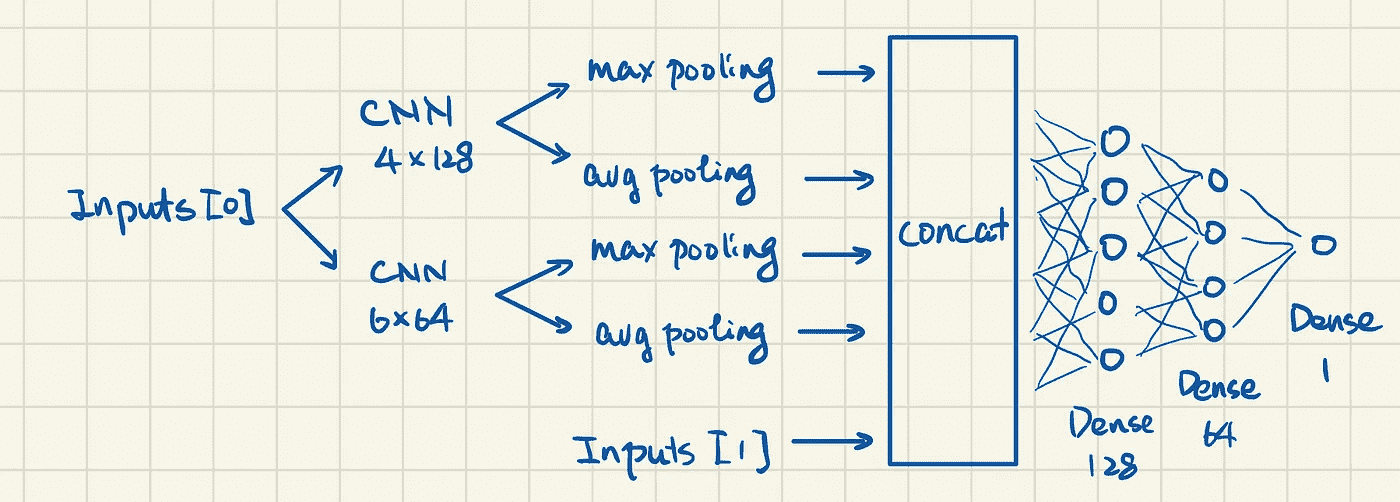 Inputs [0]
CNN
4 × 128
CNN
6×64
max pooling
avg pooling
max pooling
avg pooling
Inputs [1]
concat
Dense
128
Dense
64
Dense
1